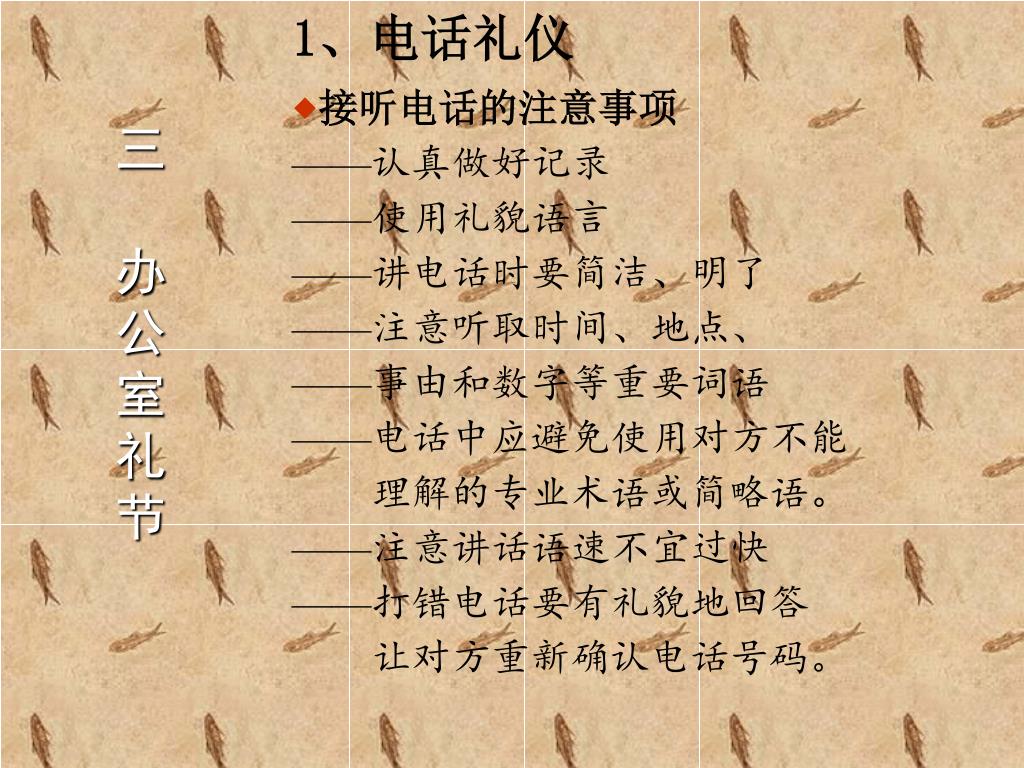 三 办公室礼节
1、电话礼仪
◆接听电话的注意事项
——认真做好记录
——使用礼貌语言
——讲电话时要简洁、明了
——注意听取时间、地点、
——事由和数字等重要词语
——电话中应避免使用对方不能
理解的专业术语或简略语。
——注意讲话语速不宜过快
——打错电话要有礼貌地回答
让对方重新确认电话号码。